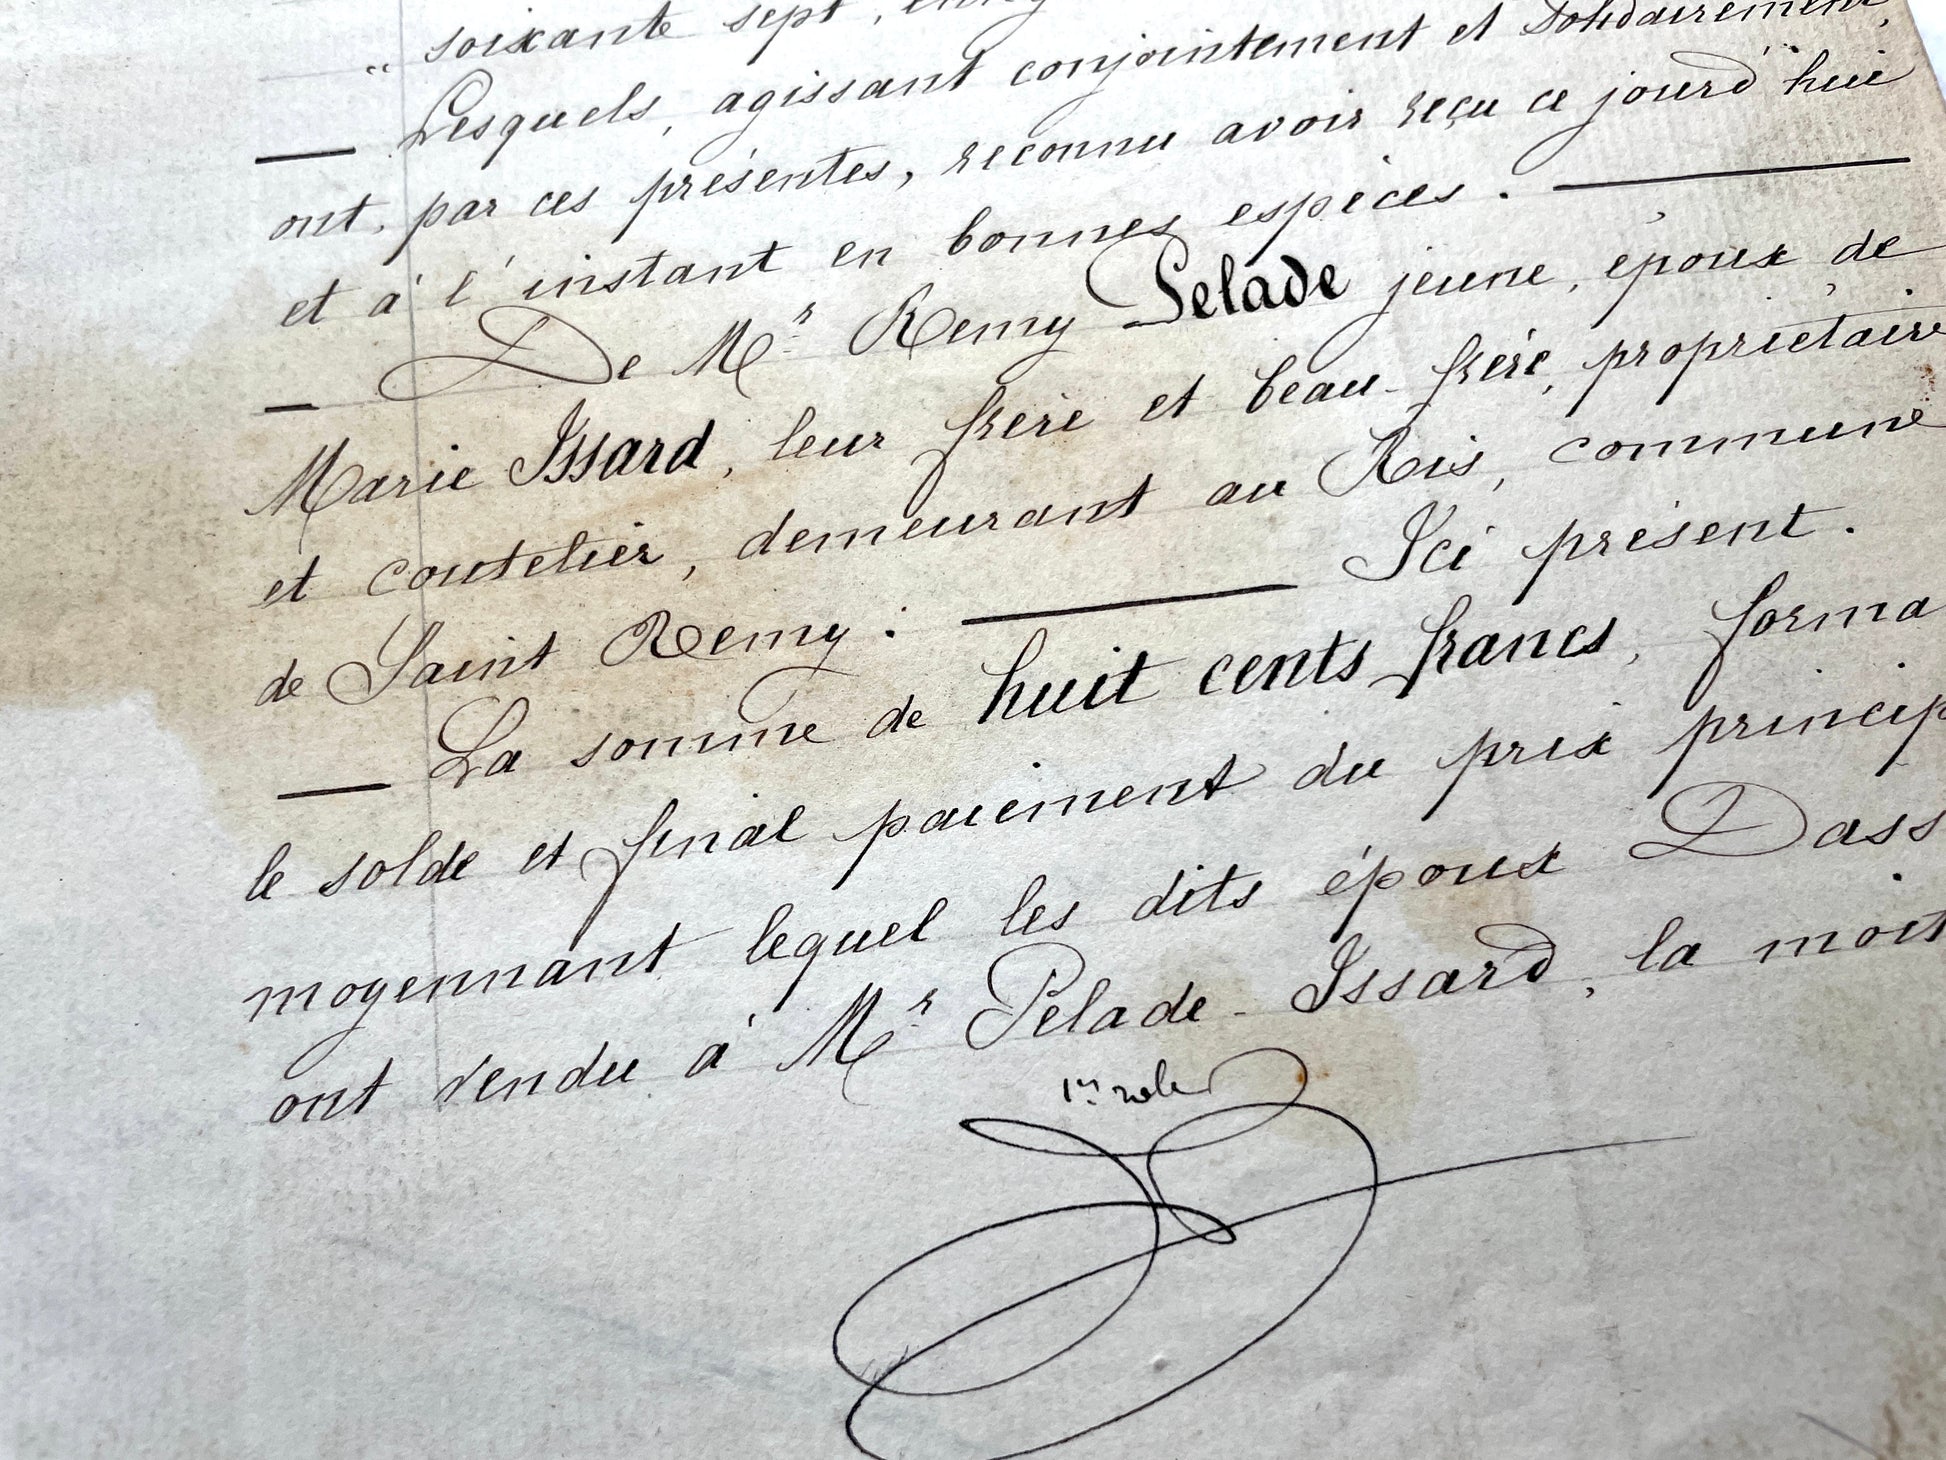 " soixante sept,
— Lesquels, agissant conjointement et solidairement,
ont, par ces présentes, reconnu avoir reçu ce jourd'hui
et à l'instant en bonnes espèces. —
— De Mr Remy Pelade jeune, époux de
Marie Issard, leur frère et beau-frère, propriétaire
et coutelier, demeurant au Ris, commune
de Saint Remy. — Ici présent.
— La somme de huit cents francs, forma
le solde et final paiement du prix princip
moyennant lequel les dits époux Dass
ont vendu à Mr Pelade-Issard, la moit
1er role